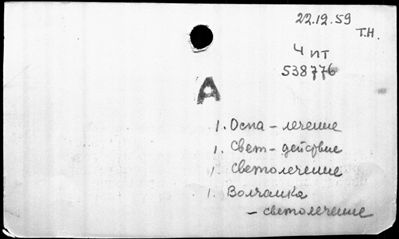 22.12.59
Т.Н.
4 пт
538776
А
1. Оспа - лечение
1. Свет - действие
1. Светолечение
1. Волчанка
- светолечение